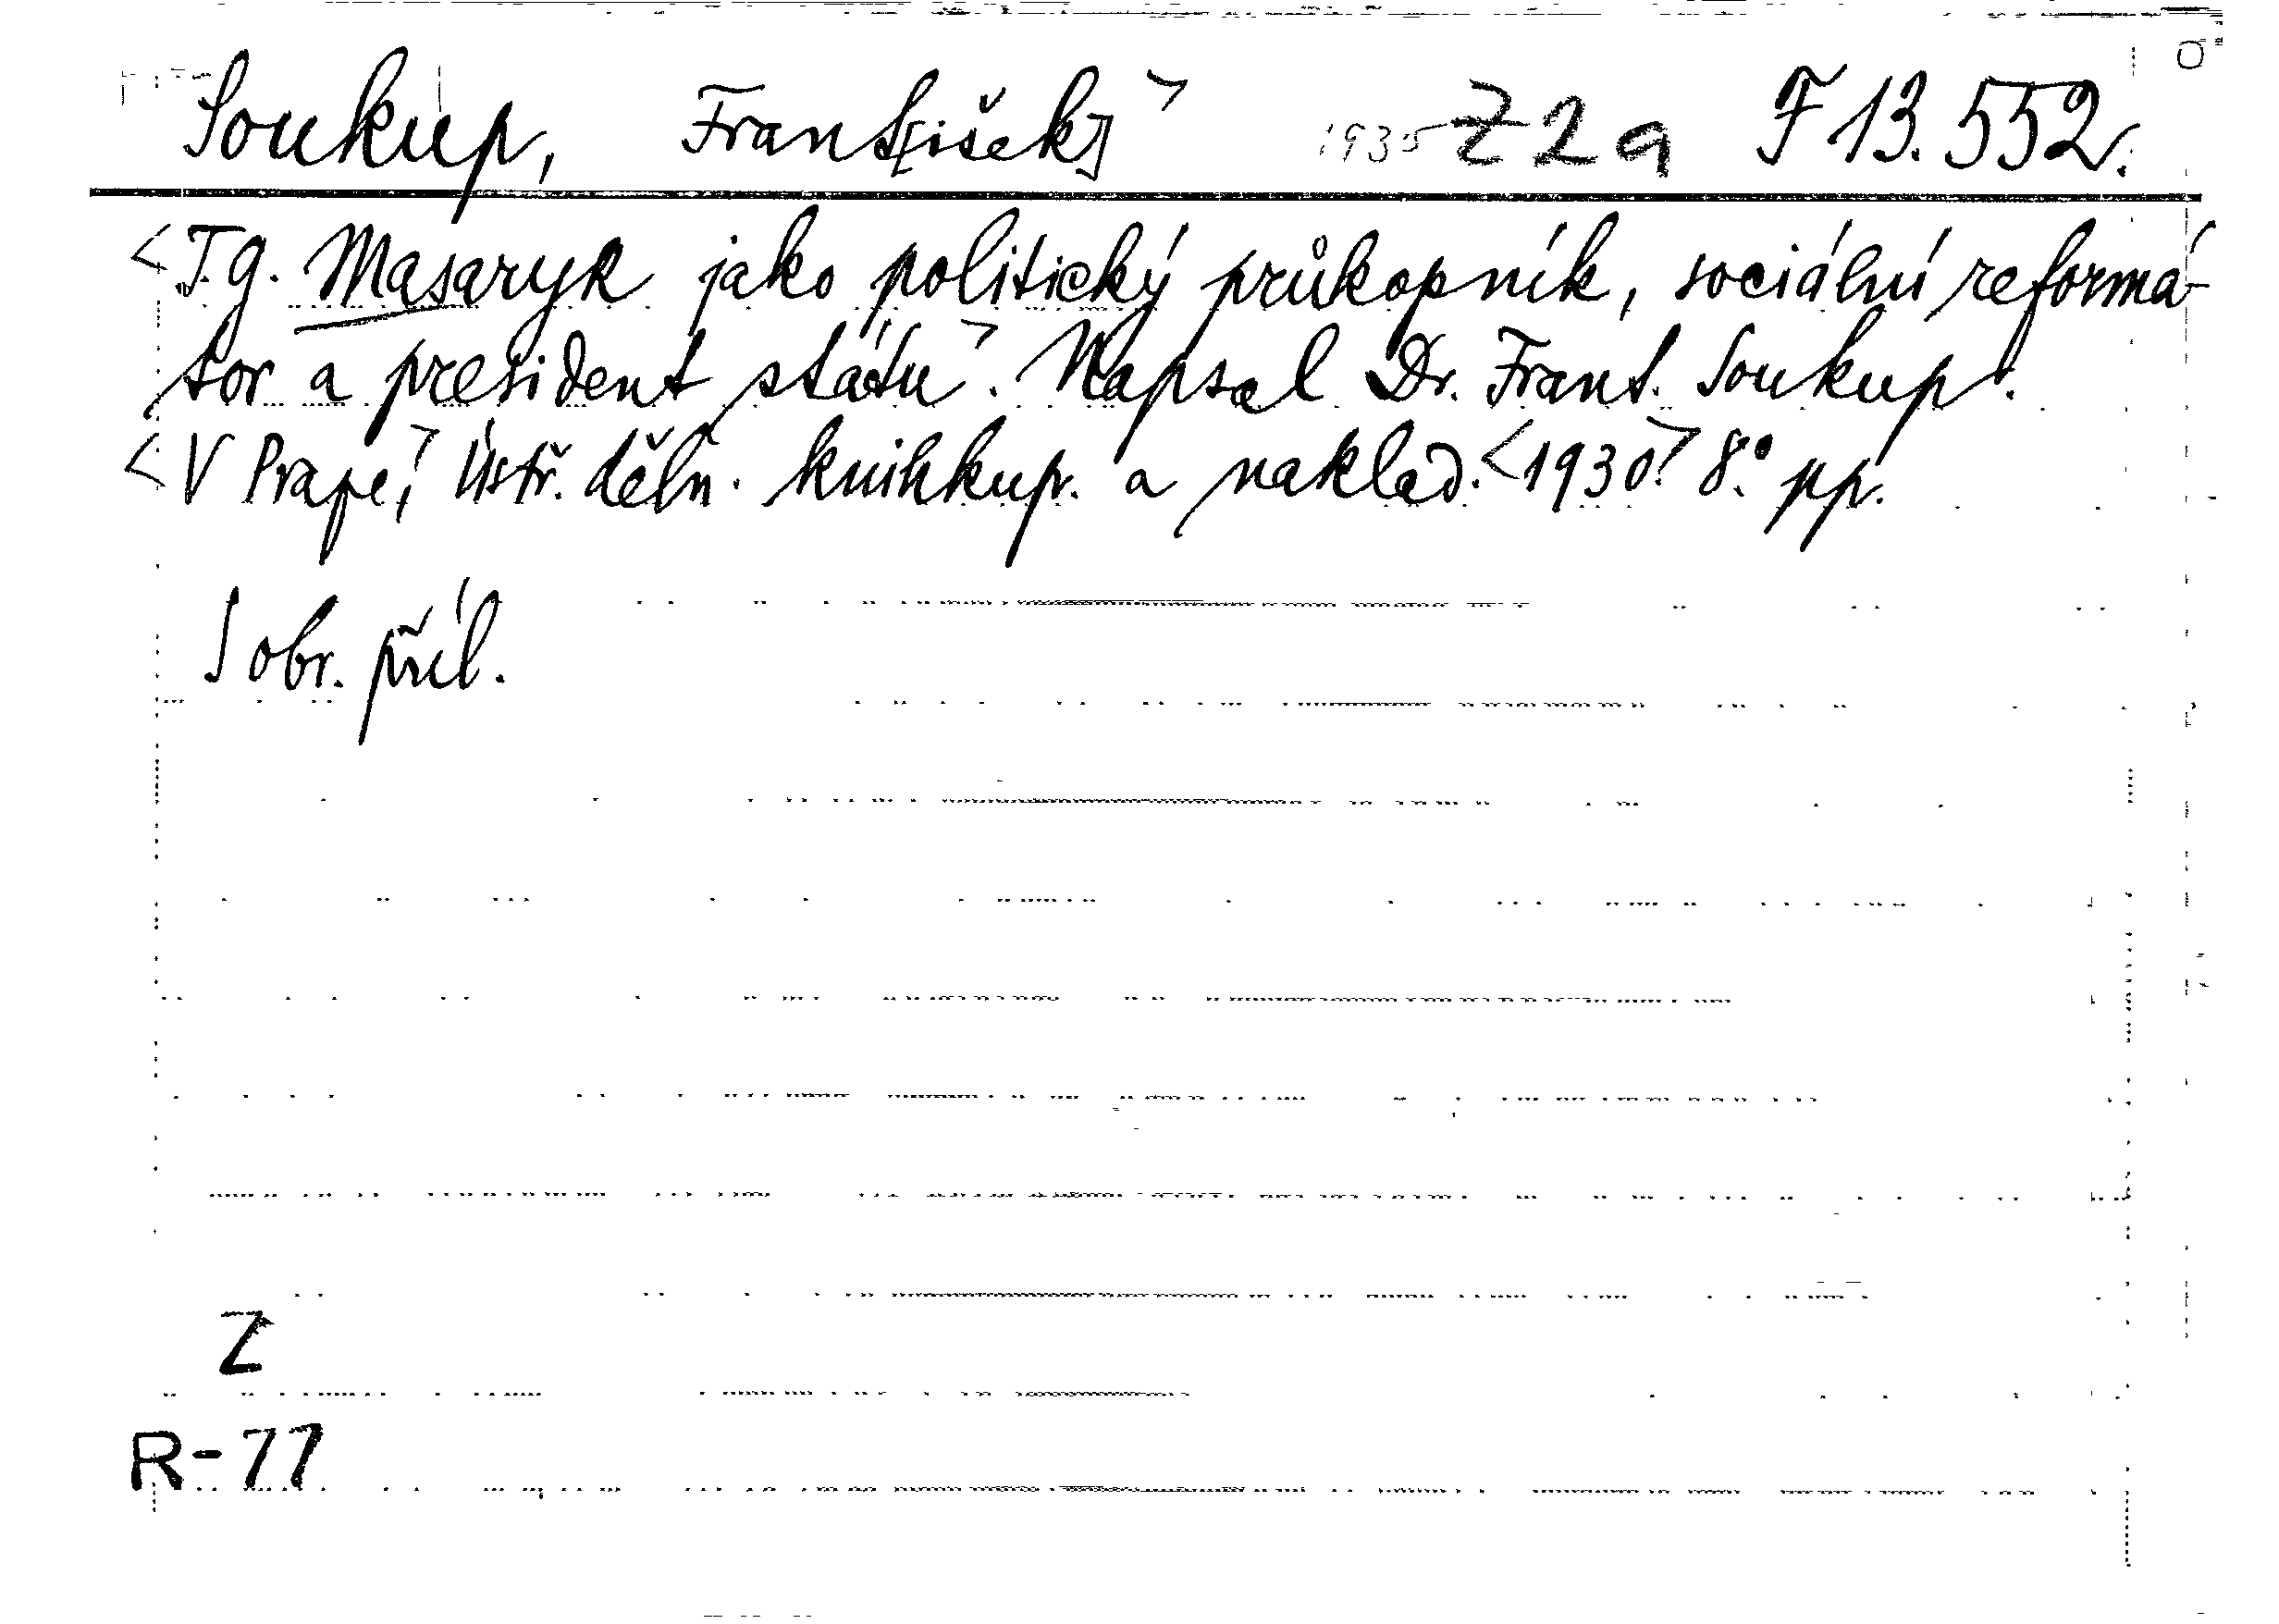 Soukup, Frant[išek]> 1935 Z2a F 13.552.
<T.G. Masaryk jako politický průkopník, sociální reformá-
tor a president státu>. Napsal Dr. Frant. Soukup.
<V Praze,> Ústř. děln. knihkup. a naklad. <1930.> 8.° pp.
S obr. příl.
Z
R-77